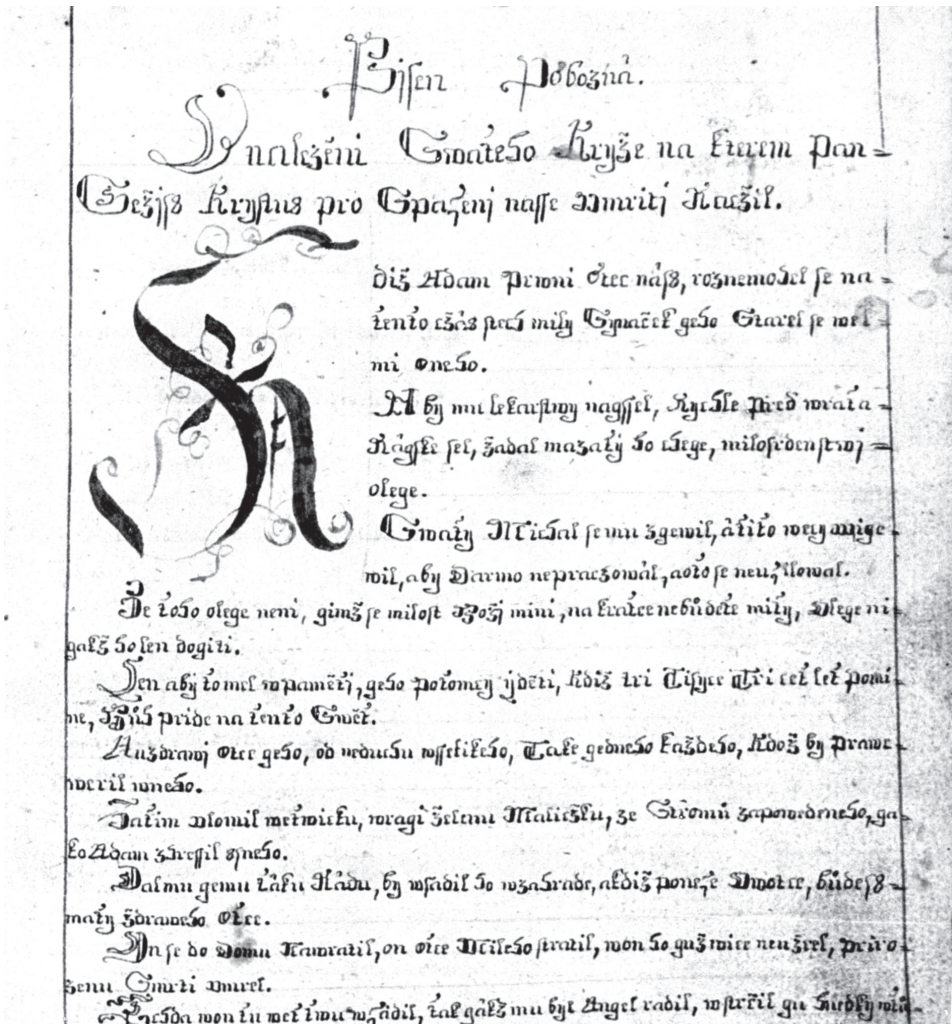 Pisen Pobozná.
O nalezeni Swateho Kryže na kterem Pan=
Gežjss Krystus pro Spaseni nasse Vmriti Raczil.
Kdiž Adam Prwni Otec náss, roznemohel se na=
tento czas sseth mily Synaček geho Starel se wel=
mi oneho.
A by mu lekarstwy nagssel, Rychle Pred wrata=
Rágske ssel, žadal mazaty ho wlege, milosrdenstwj=
olege.
Swaty Michal se mu zgewil, a tito wecy
wil, aby Darmo nepraczowal, aoto se neusilowal.
Že toho olege neni, gimž se milost Boži mini, na kratce nebůdete mity, Olege ni=
gakž ho len dogiti.
Jen aby to mel wpamětj, geho potomcy y děti, kdiž tri Tisyce Tri cet let pomi=
ne, Bůh pride na tento Swět.
A uzdrawj otce geho, od neduhu wsselikeho, Take gednoho každeho, kdož by prawe=
weril wneho.
Zatim vlomil wetwicku, wragi zelenu Maliczku, ze Stromů zapowedeneho, ga=
ko Adam zhressil sneho.
Dal mu gemu táku Rádu, by wsadil ho wzahrade, a kdiž ponese Owotce, bůdess=
maty zdraweho Otce.
On se do Domu Nawratil, on otce Mileho stratil, won ho guž wice neuzrel, priro=
zenu Smrti vmrel.
Tehda won tu wetwu wsádil, tak gakž mu byl Angel radil, wstrčil gu